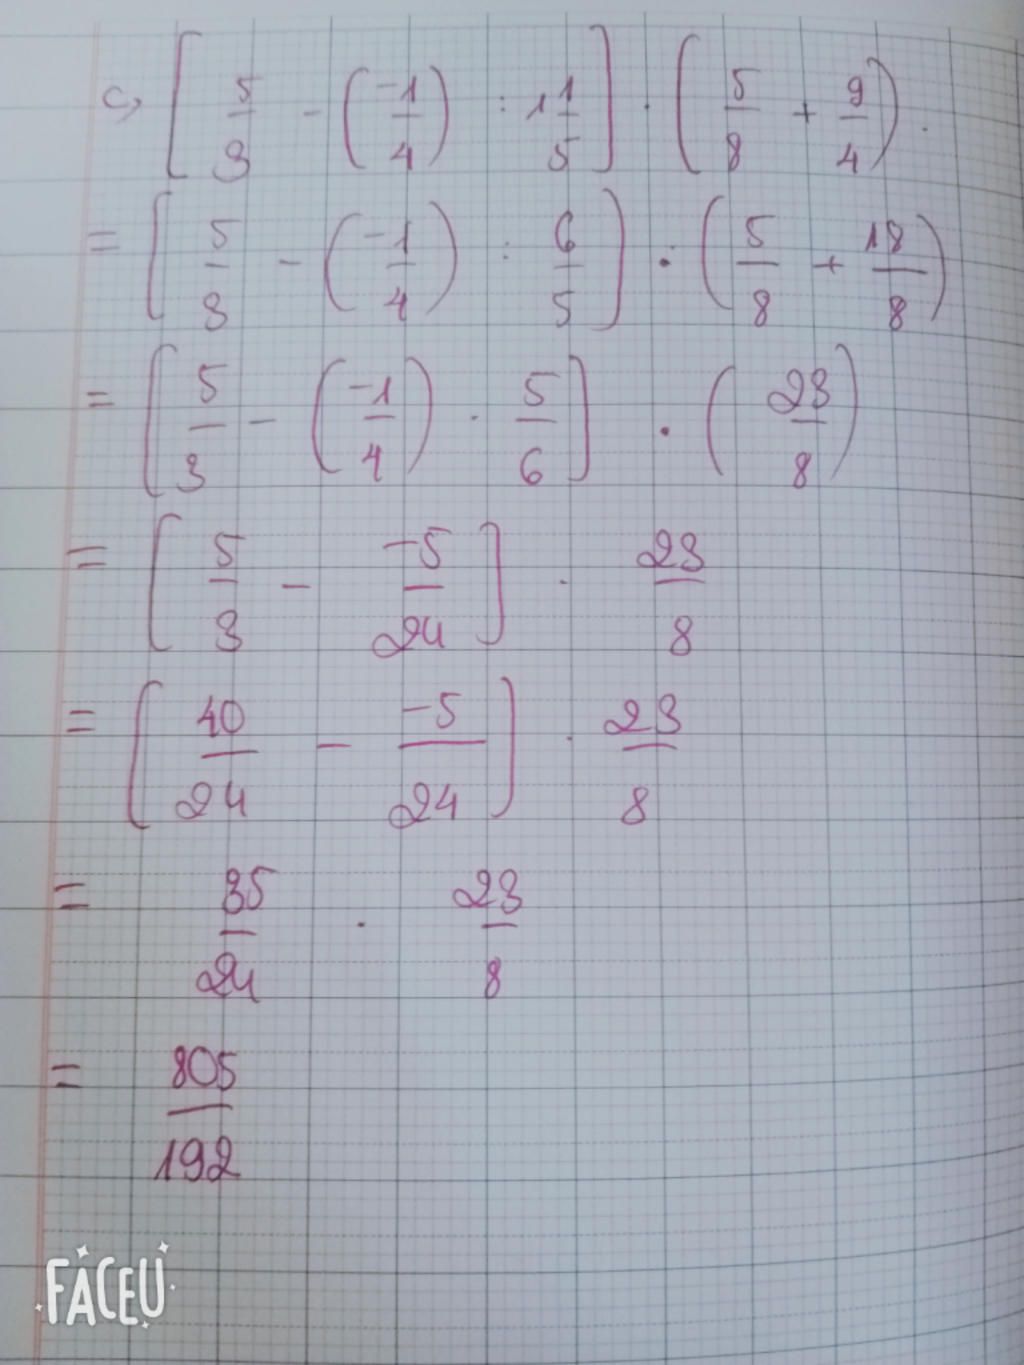 c, [ 5/3 - ( -1/4 ) : 1 1/5 ] . ( 5/8 + 9/4 ) .
= [ 5/3 - ( -1/4 ) : 6/5 ] . ( 5/8 + 18/8 )
= [ 5/3 - ( -1/4 ) . 5/6 ] . ( 23/8 )
= [ 5/3 - -5/24 ] . 23/8
= [ 40/24 - -5/24 ] . 23/8
= 35/24 . 23/8
= 805/192
FACEU